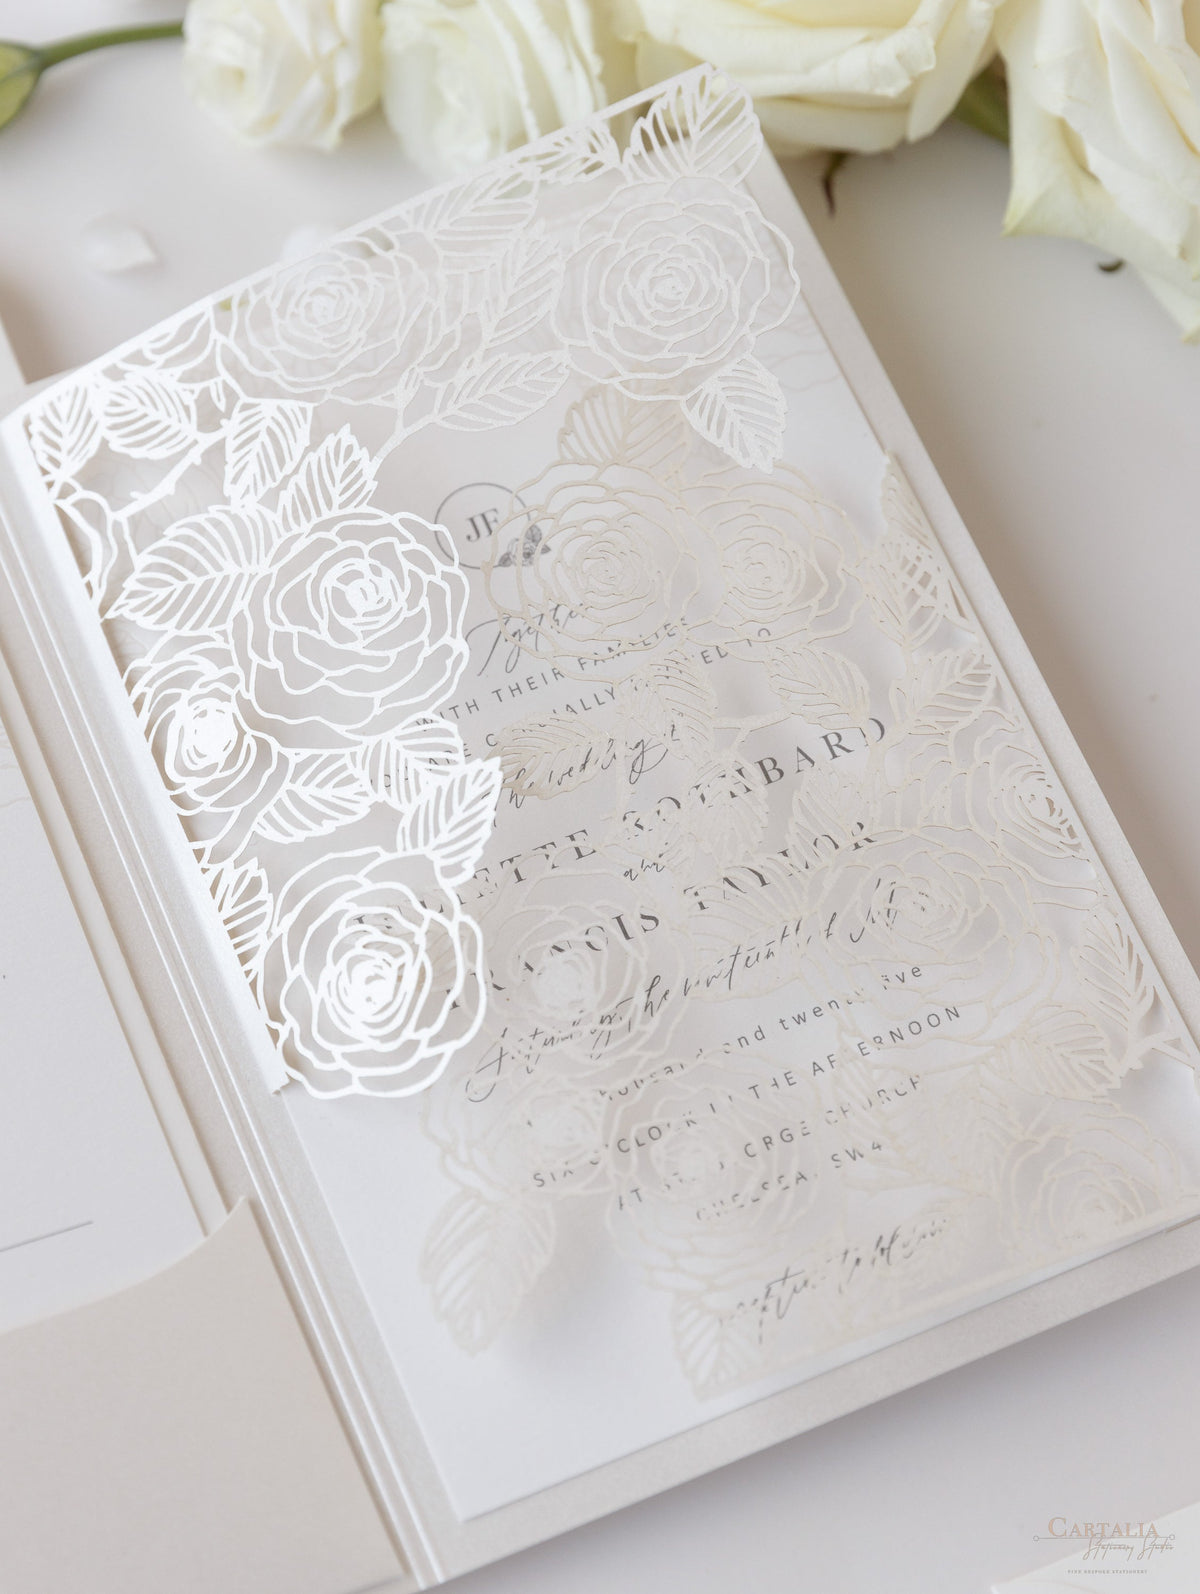 JF
Together
WITH THEIR FAMILIES
YOU ARE CORDIALLY INVITED TO
the wedding of
ROTHBARD
and
FRANCIS TAYLOR
Saturday, the nineteenth of July
thousand and twenty five
SIX O'CLOCK IN THE AFTERNOON
AT ST. GEORGE CHURCH
CHELSEA, SW4
reception to follow
CARTALIA
Stationery Studio
FINE BESPOKE STATIONERY